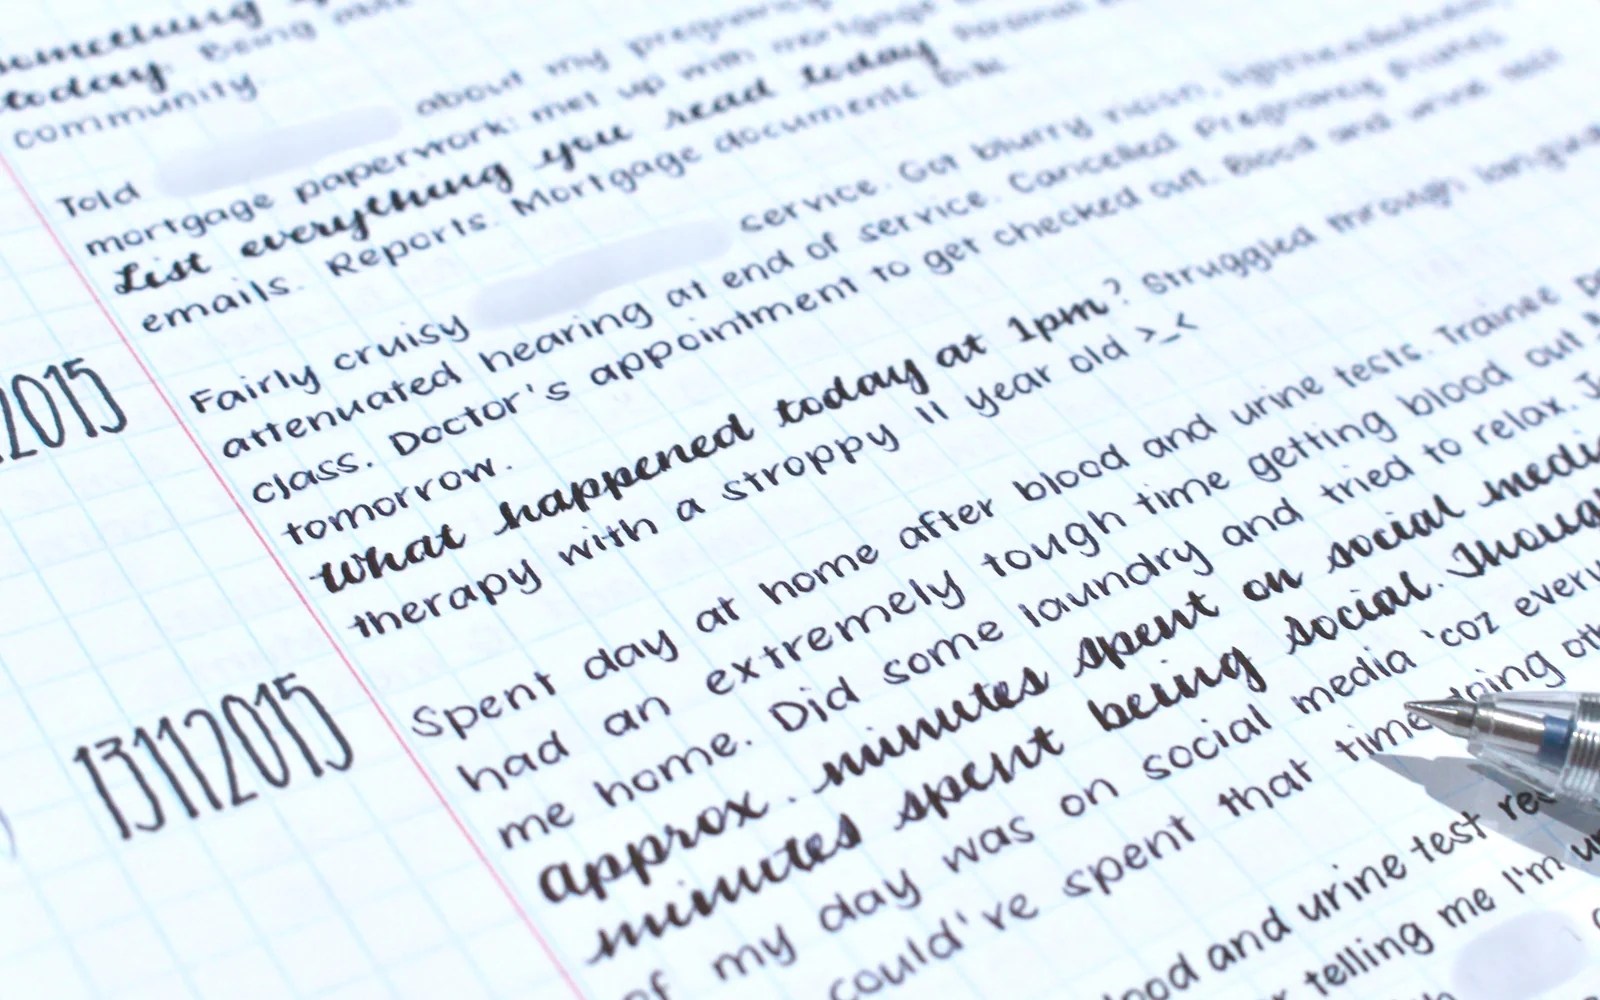 something
today. Being
community
Told about my
mortgage paperwork; met up with mortgage
List everything you read today
emails. Reports. Mortgage documents
2015
Fairly cruisy service. Got blurry vision, lightheadedness,
attenuated hearing at end of service. Cancelled Pregnancy Pilates
class. Doctor's appointment to get checked out. Blood and urine
tomorrow.
What happened today at 1pm? Struggled through language
therapy with a stroppy 11 year old >_<
13112015
Spent day at home after blood and urine tests. Trainee
had an extremely tough time getting blood out
me home. Did some laundry and tried to relax.
approx. minutes spent on social media
minutes spent being social. Though
of my day was on social media 'coz every
could've spent that time doing
blood and urine test
telling me I'm